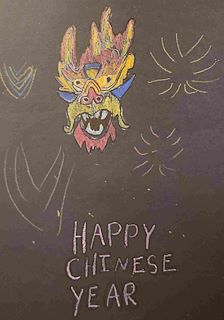 HAPPY
CHINESE
YEAR